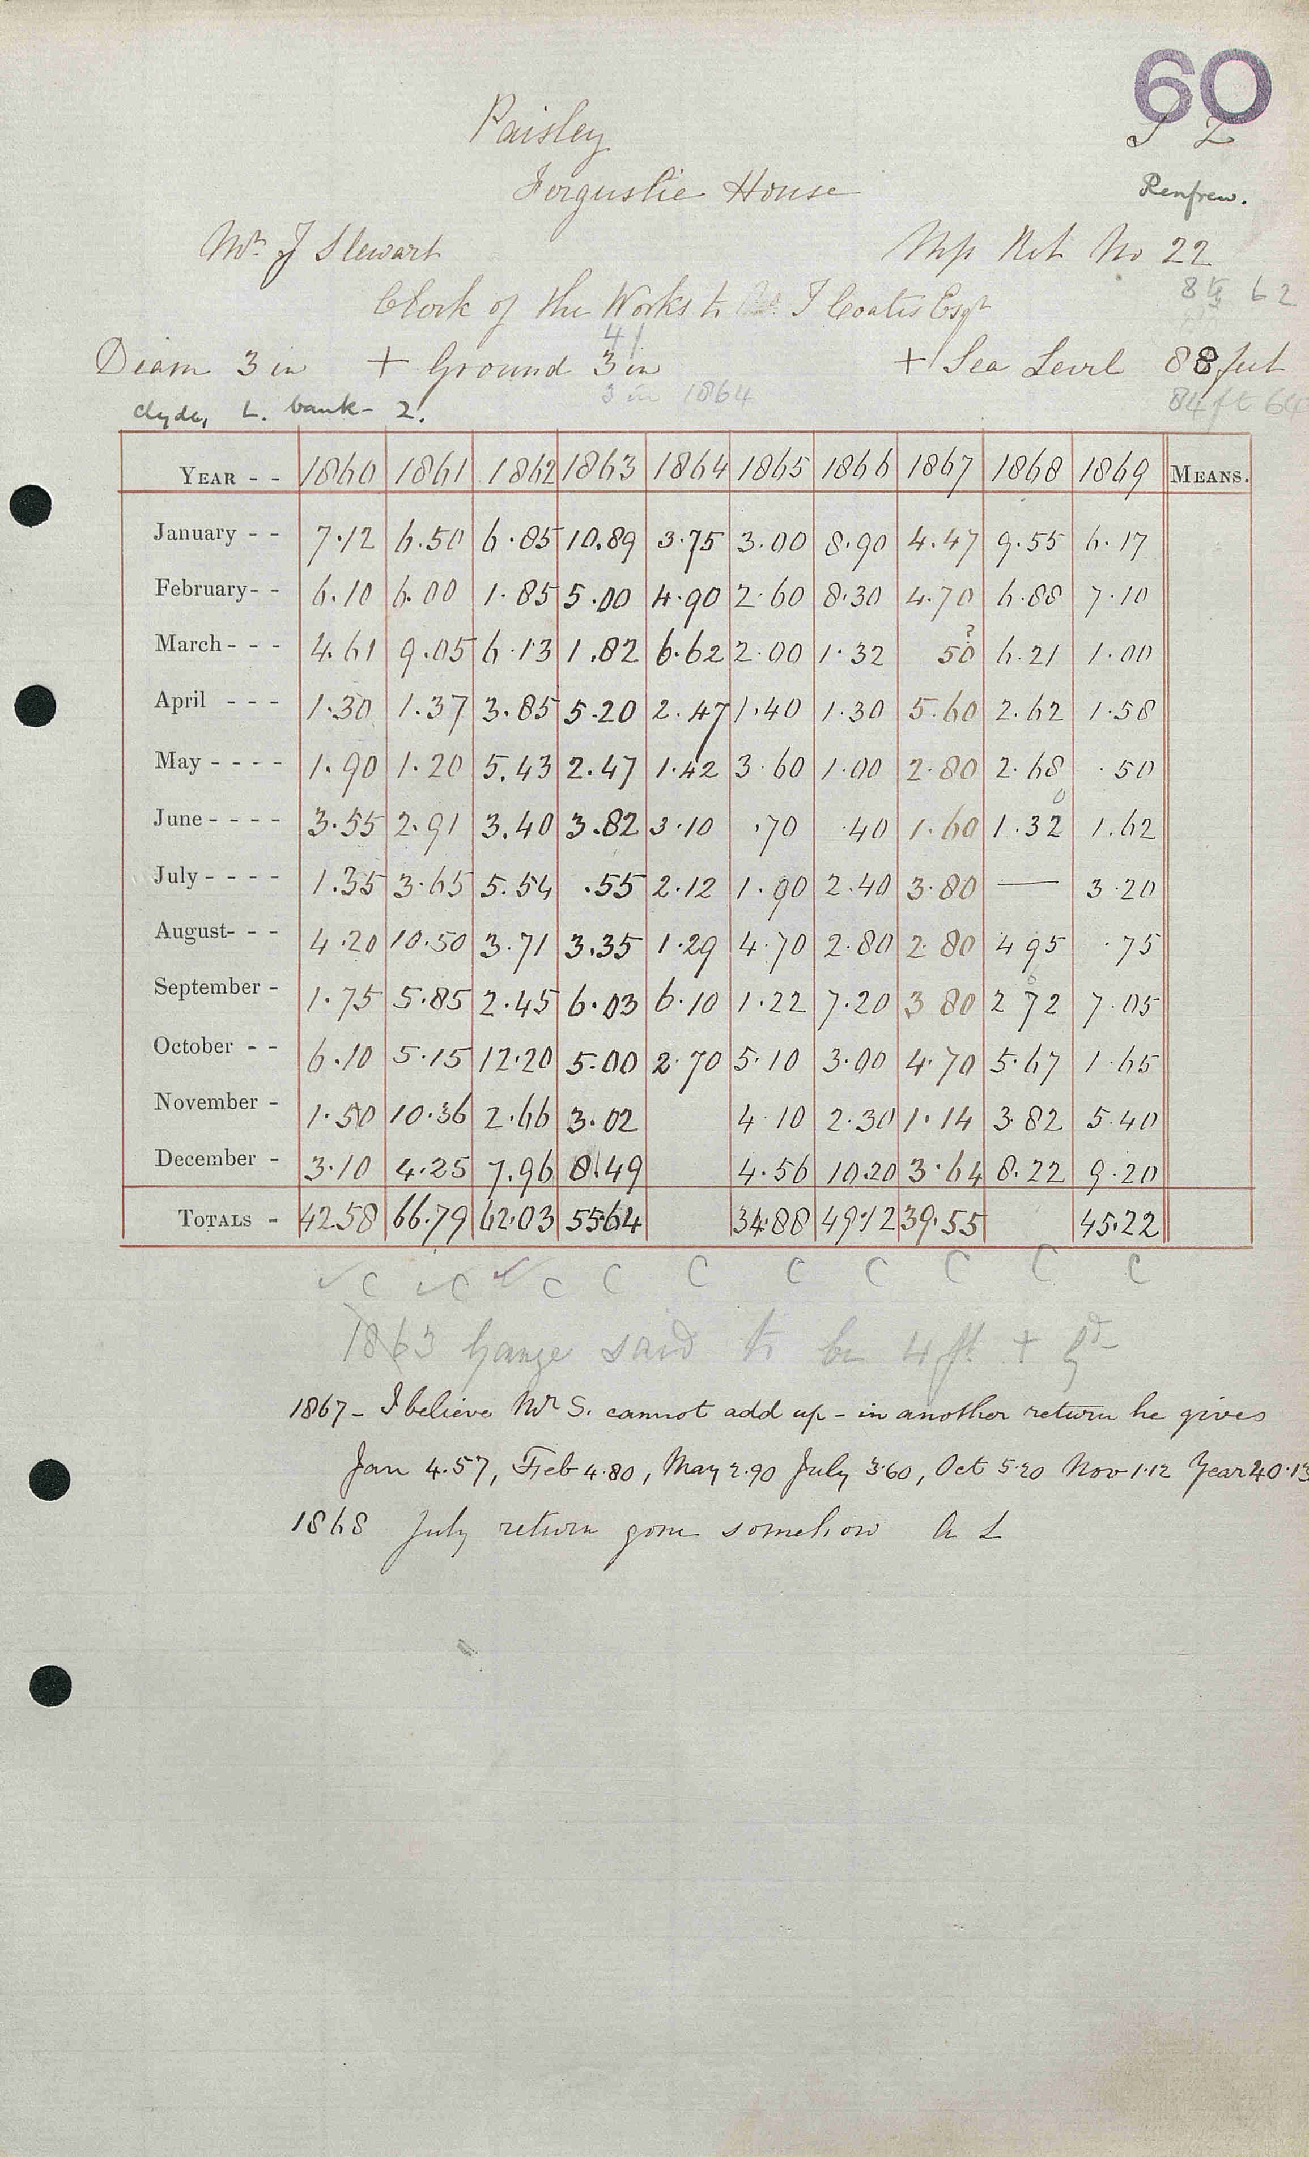 60
Paisley
Ferguslie House
Renfrew.
Mr J Stewart
Clerk of the Works to T Coates Esqr
41
Diam 3 in + Ground 3 in + Sea Level 88 feet
3 in 1864 84 ft 64
Clyde, L. bank - 2.
YEAR - - 1860 1861 1862 1863 1864 1865 1866 1867 1868 1869 MEANS.
January - - 7.12 6.50 6.85 10.89 3.75 3.00 8.90 4.47 9.55 6.17
February - - 6.10 6.00 1.85 5.00 4.90 2.60 8.30 4.70 6.88 7.10
March - - - 4.61 9.05 6.13 1.82 6.62 2.00 1.32 50? 6.21 1.00
April - - - 1.30 1.37 3.85 5.20 2.47 1.40 1.30 5.60 2.62 1.58
May - - - - 1.90 1.20 5.43 2.47 1.42 3.60 1.00 2.80 2.68 .50
June - - - - 3.55 2.91 3.40 3.82 3.10 .70 .40 1.60 1.32 1.62
July - - - - 1.35 3.65 5.54 .55 2.12 1.90 2.40 3.80 — 3.20
August- - - 4.20 10.50 3.71 3.35 1.29 4.70 2.80 2.80 4 95 .75
September - 1.75 5.85 2.45 6.03 6.10 1.22 7.20 3 80 2 72 7.05
October - - 6.10 5.15 12.20 5.00 2.70 5.10 3.00 4.70 5.67 1.65
November - 1.50 10.36 2.66 3.02 4.10 2.30 1.14 3.82 5.40
December - 3.10 4.25 7.96 8.49 4.56 10.20 3.64 8.22 9.20
TOTALS - 42.58 66.79 62.03 55.64 34.88 49.12 39.55 45.22
C C C C C C C C C C
1863 Gauge said to be 4 ft + Gd
1867 - I believe Mr S. cannot add up - in another return he gives
Jan 4.57, Feb 4.80, May 2.90 July 3.60, Oct 5.20 Nov 1.12 Year 40.13
1868 July return gone somehow